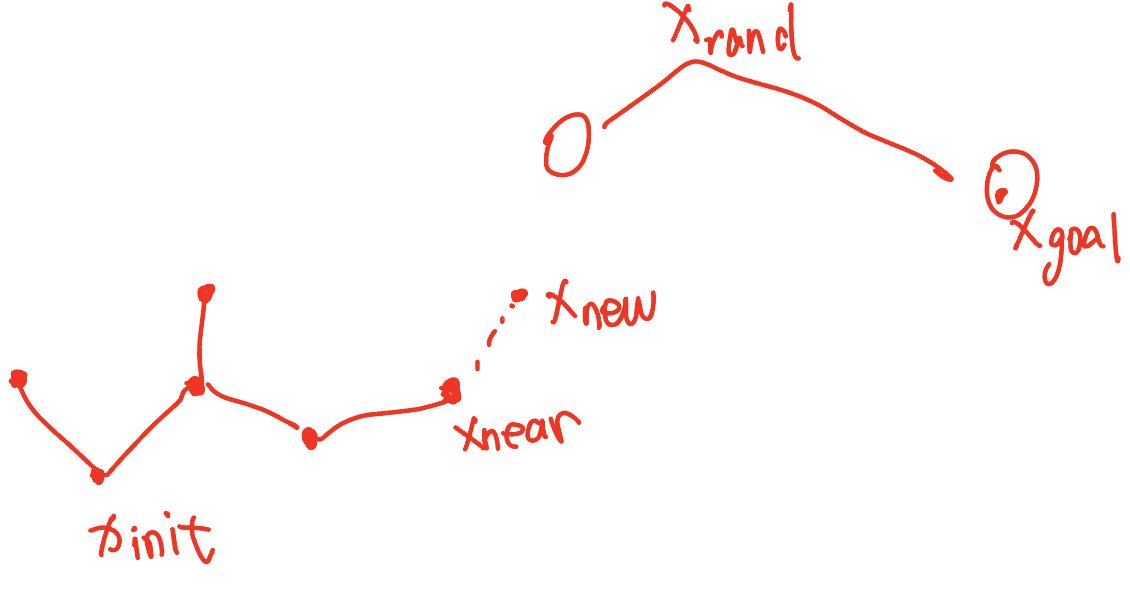 xrand
xgoal
xnew
xnear
xinit